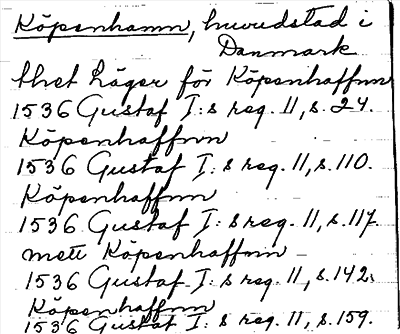 Köpenhamn, huvudstad i
Danmark
thet Läger för Köpenhaffnn
1536 Gustaf I:s reg. 11, s. 24.
Köpenhaffnn
1536 Gustaf I:s reg. 11, s. 110.
Köpenhaffnn
1536 Gustaf I:s reg. 11, s. 117.
mett Köpenhaffnn
1536 Gustaf I:s reg. 11, s. 142.
Köpenhaffnn
1536 Gustaf I:s reg. 11, s. 159.